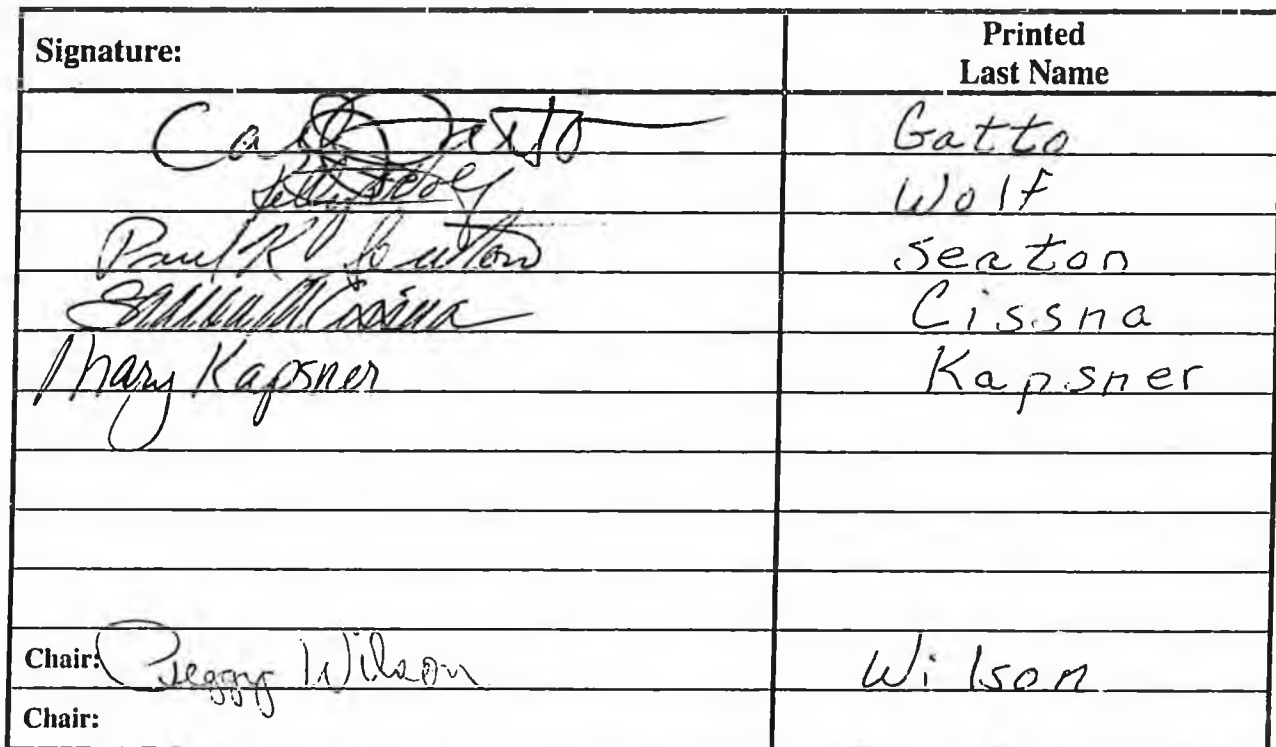 Signature: Printed
Last Name
Carl Gatto Gatto
Kelly Wolf Wolf
Paul K Seaton Seaton
Sharon M Cissna Cissna
Mary Kapsner Kapsner
Chair: Peggy Wilson Wilson
Chair: